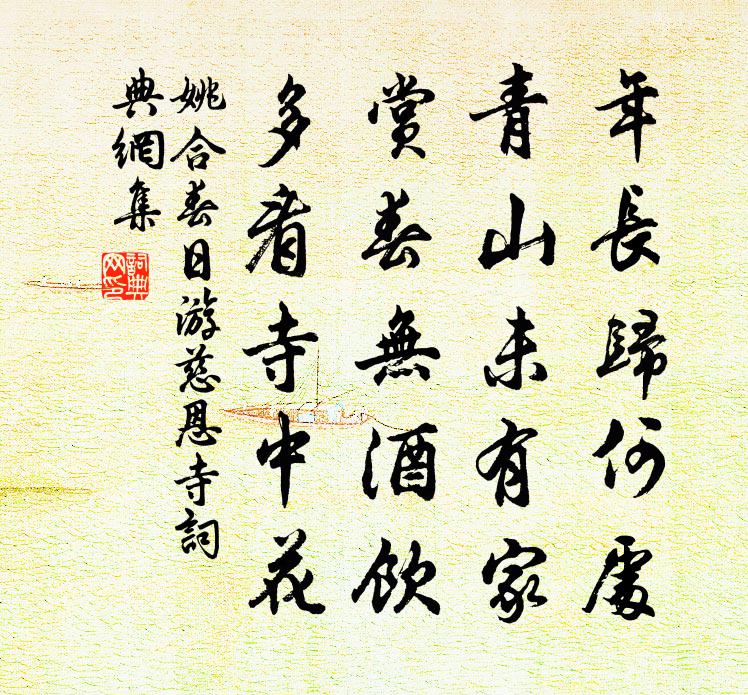 年長歸何處
青山未有家
賞春無酒飲
多看寺中花
姚合春日游慈恩寺詞
典網集
詞典
网印